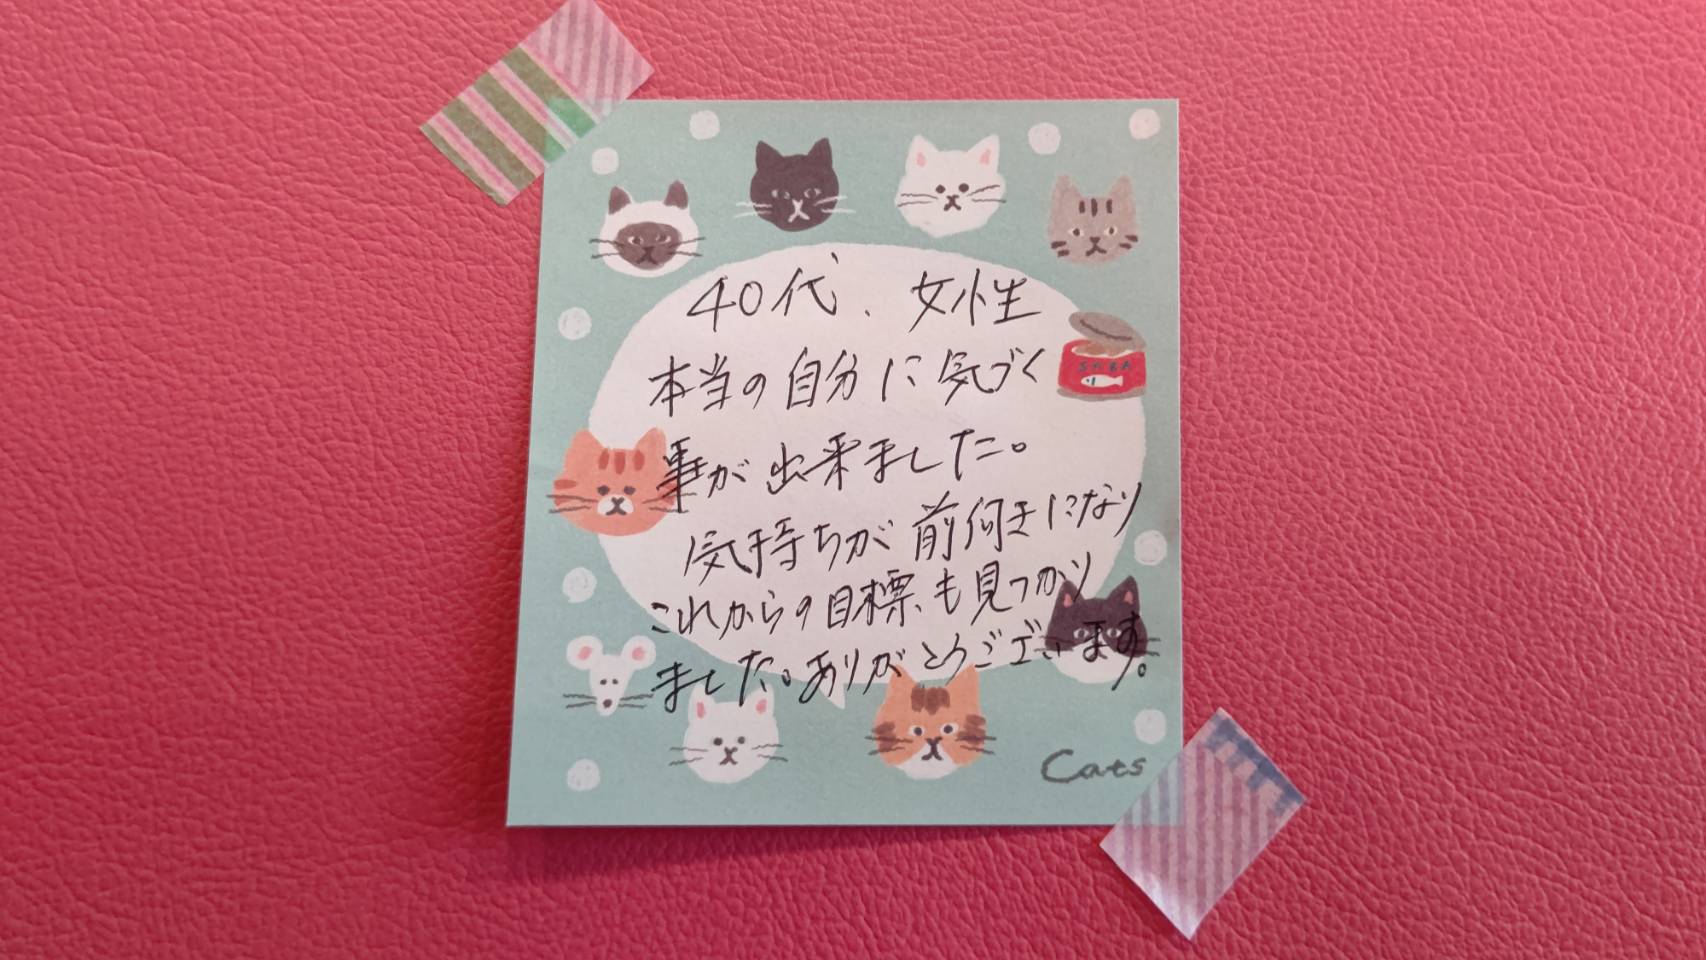 40代、女性
本当の自分に気づく
事が出来ました。
気持ちが前向きになり
これからの目標も見つかり
ました。ありがとうございます。
Cats